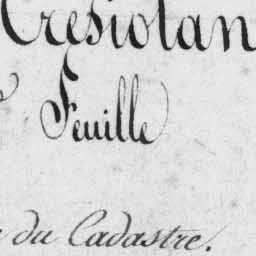 Cresiolan
Feuille
du Cadastre.